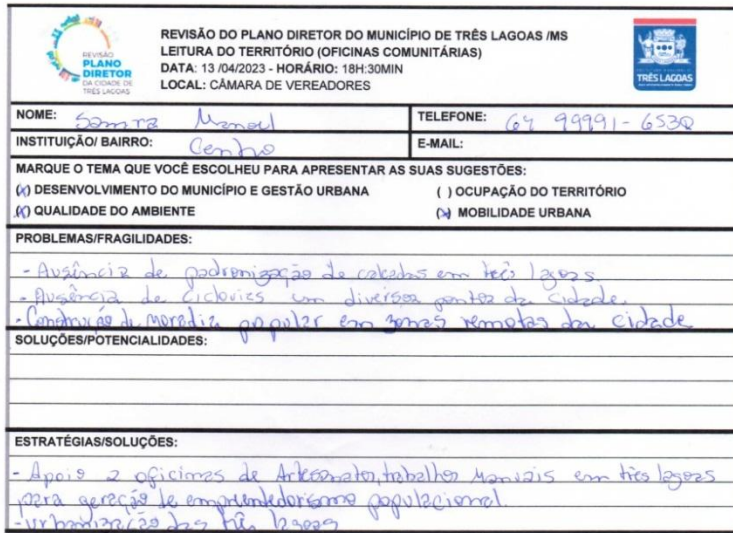 REVISÃO
PLANO
DIRETOR
DA CIDADE DE
TRÊS LAGOAS
REVISÃO DO PLANO DIRETOR DO MUNICÍPIO DE TRÊS LAGOAS /MS
LEITURA DO TERRITÓRIO (OFICINAS COMUNITÁRIAS)
DATA: 13 /04/2023 - HORÁRIO: 18H:30MIN
LOCAL: CÂMARA DE VEREADORES
TRÊS LAGOAS
NOME: Samra Manoel
TELEFONE: 67 99991-6530
INSTITUIÇÃO/ BAIRRO: Centro
E-MAIL:
MARQUE O TEMA QUE VOCÊ ESCOLHEU PARA APRESENTAR AS SUAS SUGESTÕES:
(x) DESENVOLVIMENTO DO MUNICÍPIO E GESTÃO URBANA ( ) OCUPAÇÃO DO TERRITÓRIO
(x) QUALIDADE DO AMBIENTE (x) MOBILIDADE URBANA
PROBLEMAS/FRAGILIDADES:
- Ausência de padronização de calçadas em três lagoas.
- Ausência de ciclovias em diversos pontos da cidade.
- Construção de moradia popular em zonas remotas da cidade
SOLUÇÕES/POTENCIALIDADES:
ESTRATÉGIAS/SOLUÇÕES:
- Apoio a oficinas de Artesanatos, trabalhos manuais em três lagoas
para geração de empreendedorismo populacional.
- urbanização das três lagoas